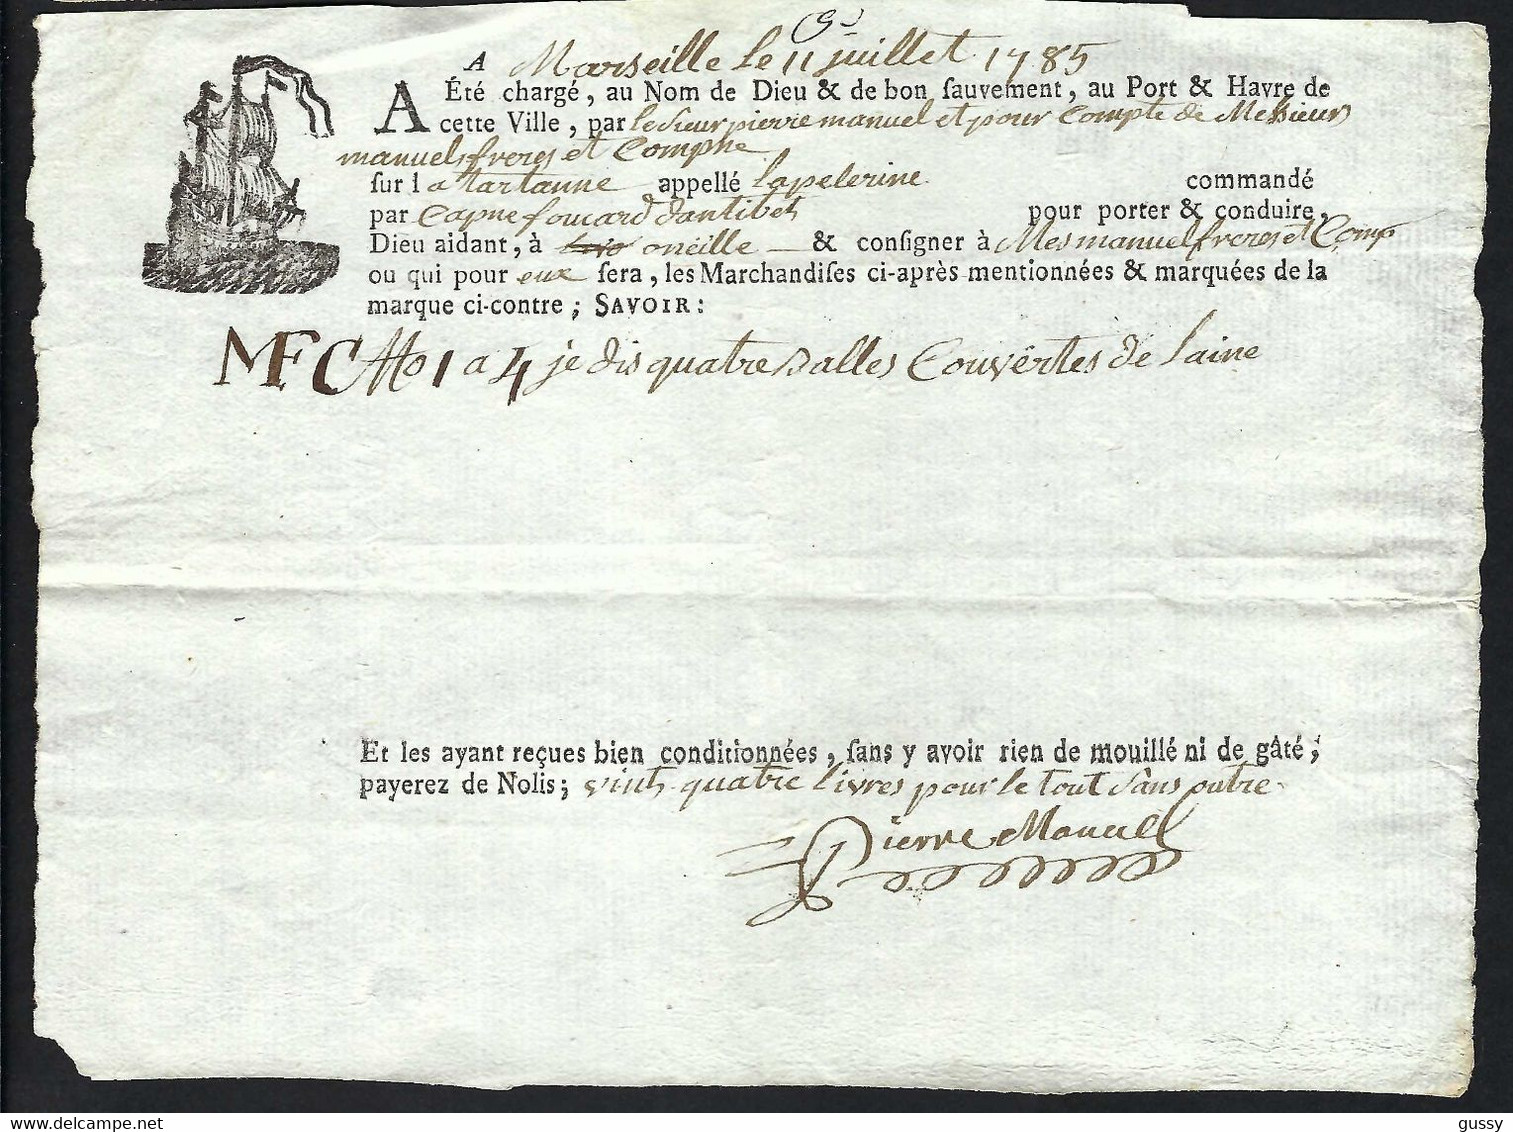 A Marseille le 11 juillet 1785
A Été chargé, au Nom de Dieu & de bon ſauvement, au Port & Havre de
cette Ville, par le sieur pierre manuel et pour Compte de Messieurs
manuels freres et Compne
ſur la tartanne appellé lapelerine commandé
par Capne foucard dantibes pour porter & conduire,
Dieu aidant, à oneille & conſigner à Mes manuel freres et Comp
ou qui pour eux ſera, les Marchandiſes ci-après mentionnées & marquées de la
marque ci-contre; SAVOIR:
MFC No 1 a 4 je dis quatre Balles Couvertes de laine
Et les ayant reçues bien conditionnées, ſans y avoir rien de mouillé ni de gâté;
payerez de Nolis; vint quatre livres pour le tout sans outre
Pierre Manuel
gussy